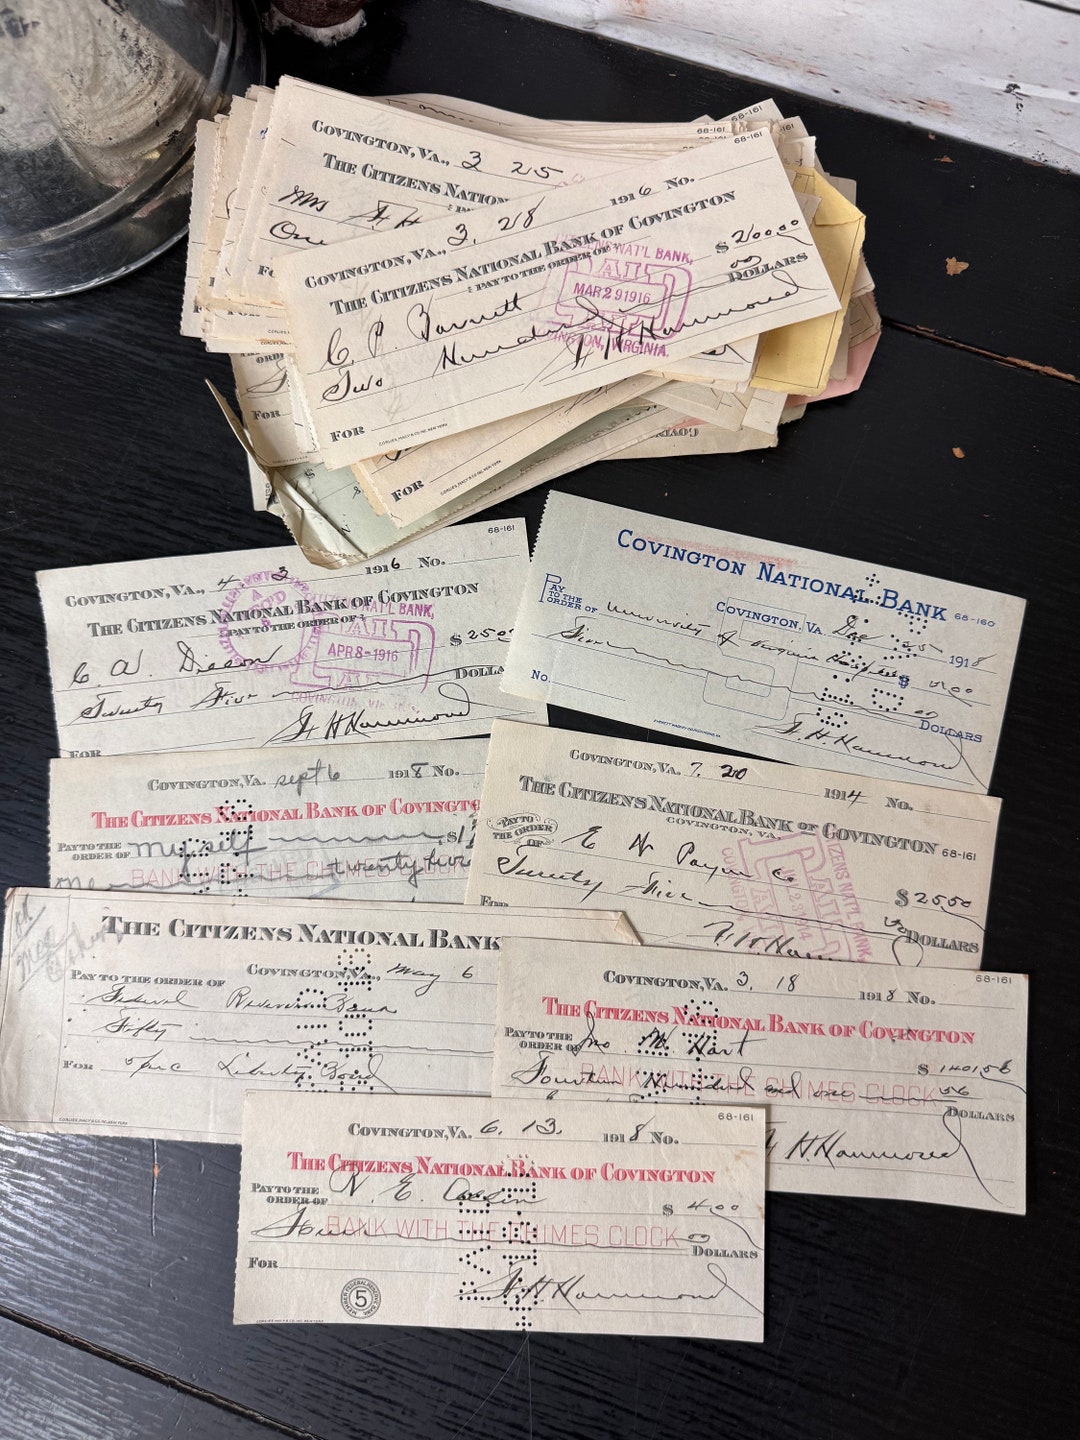 68-161
68-161
68-161
COVINGTON, VA., 3 25
THE CITIZENS NATION
Mrs F. H
One
68-161
COVINGTON, VA., 3. 28 1916 No.
THE CITIZENS NATIONAL BANK OF COVINGTON
PAY TO THE ORDER OF
C P Barnett $ 200.00
Two Hundred DOLLARS
NAT'L BANK,
PAID
MAR 29 1916
VIRGINIA.
F H Hammond
FOR
CORLIES, MACY & CO. INC. NEW YORK
FOR
FOR
68-161
COVINGTON, VA., 4 3 1916 No.
THE CITIZENS NATIONAL BANK OF COVINGTON
PAY TO THE ORDER OF
C W $ 25
Twenty Five DOLLA
NAT'L BANK,
PAID
APR 8-1916
F H Hammond
FOR
COVINGTON NATIONAL BANK 68-160
PAY TO THE ORDER OF
COVINGTON, VA. Dec 1918
University of Virginia Hospital $ 5.00
Five DOLLARS
No.
F. H. Hammond
COVINGTON, VA. Sept 6 1918 No.
THE CITIZENS NATIONAL BANK OF COVINGTO
PAY TO THE ORDER OF myself $
one twenty two
BANK WITH THE CHIMES CLOCK
COVINGTON, VA. 7. 20 1914 No.
THE CITIZENS NATIONAL BANK OF COVINGTON 68-161
COVINGTON, VA.
PAY TO THE ORDER OF E N Payne Co $ 25.50
Twenty Five DOLLARS
CITIZENS NAT'L BANK
PAID
FOR
F. H. Hammond
THE CITIZENS NATIONAL BANK
COVINGTON, VA., May 6
PAY TO THE ORDER OF
Federal Reserve Bank
Fifty
FOR Liberty Bond
CORLIES, MACY & CO. INC. NEW YORK
68-161
COVINGTON, VA. 3. 18 1918 No.
THE CITIZENS NATIONAL BANK OF COVINGTON
PAY TO THE ORDER OF Jno. M. Hart $ 1401.56
Fourteen Hundred and one 56 DOLLARS
BANK WITH THE CHIMES CLOCK
F H. Hammond
68-161
COVINGTON, VA. 6. 13. 1918 No.
THE CITIZENS NATIONAL BANK OF COVINGTON
PAY TO THE ORDER OF N. E. $ 4.00
Four DOLLARS
BANK WITH THE CHIMES CLOCK
FOR
F. H Hammond
MEMBER FEDERAL RESERVE BANK 5
CORLIES, MACY & CO. INC. NEW YORK